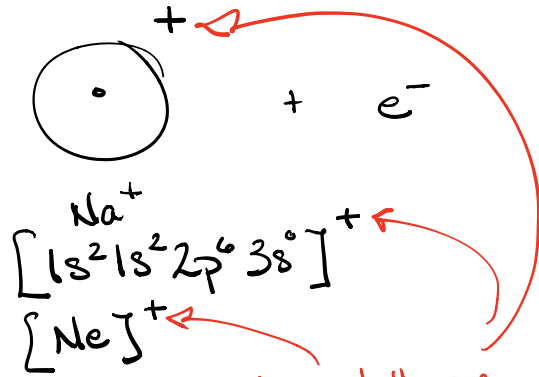 +
+ e⁻
Na⁺
[1s² 1s² 2p⁶ 3s⁰]⁺
[Ne]⁺